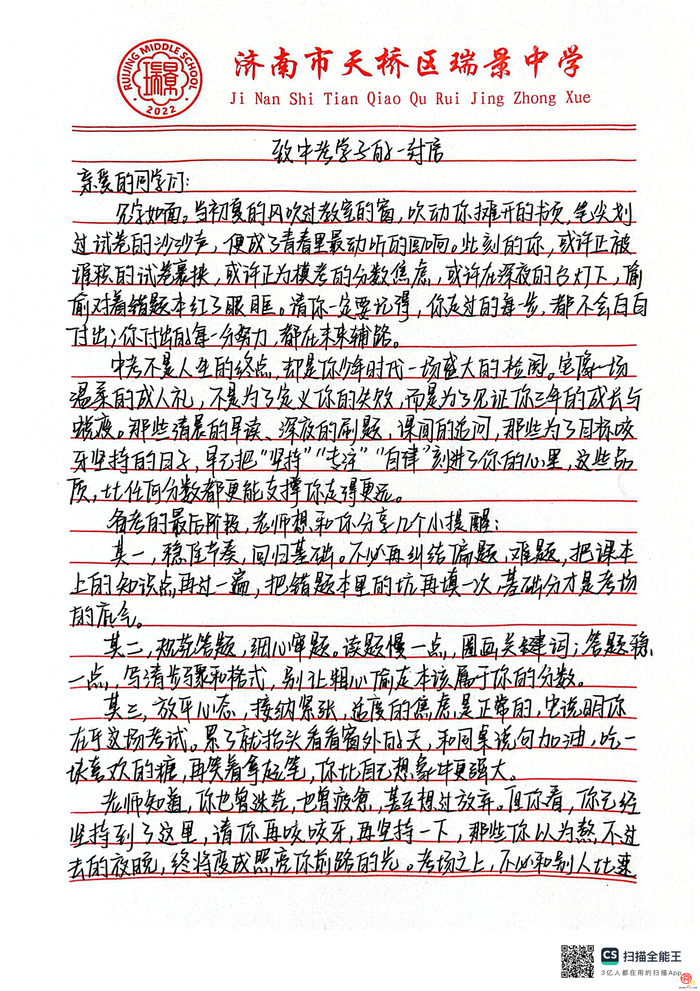 RUIJING MIDDLE SCHOOL
瑞景
2022
济南市天桥区瑞景中学
Ji Nan Shi Tian Qiao Qu Rui Jing Zhong Xue
致中考学子的一封信
亲爱的同学们：
见字如面。当初夏的风吹过教室的窗，吹动你摊开的书页，笔尖划
过试卷的沙沙声，便成了青春里最动听的回响。此刻的你，或许正被
堆积的试卷裹挟，或许正为模考的分数焦虑，或许在深夜的台灯下，偷
偷对着错题本红了眼眶。请你一定要记得，你走过的每一步，都不会白白
付出；你付出的每一分努力，都在未来铺路。
中考不是人生的终点，却是你少年时代一场盛大的检阅。它像一场
温柔的成人礼，不是为了定义你的失败，而是为了见证你三年的成长与
蜕变。那些清晨的早读、深夜的刷题，课间的追问，那些为了目标咬
牙坚持的日子，早已把“坚持”“专注”“自律”刻进了你的心里，这些品
质，比任何分数都更能支撑你走得更远。
备考的最后阶段，老师想和你分享几个小提醒：
其一，稳住节奏，回归基础。不必再纠结偏题、难题，把课本
上的知识点再过一遍，把错题本里的坑再填一次，基础分才是考场
的底气。
其二，规范答题，细心审题。读题慢一点，圈画关键词；答题稳
一点，写清步骤和格式，别让粗心偷走本该属于你的分数。
其三，放平心态，接纳紧张，适度的焦虑是正常的，它说明你
在乎这场考试。累了就抬头看看窗外的天，和同桌说句加油，吃一
块喜欢的糖，再笑着拿起笔，你比自己想象中更强大。
老师知道，你也曾迷茫，也曾疲惫，甚至想过放弃。但你看，你已经
坚持到了这里，请你再咬咬牙，再坚持一下，那些你以为熬不过
去的夜晚，终将变成照亮你前路的光。考场之上，不必和别人比速
CS 扫描全能王
3亿人都在用的扫描App